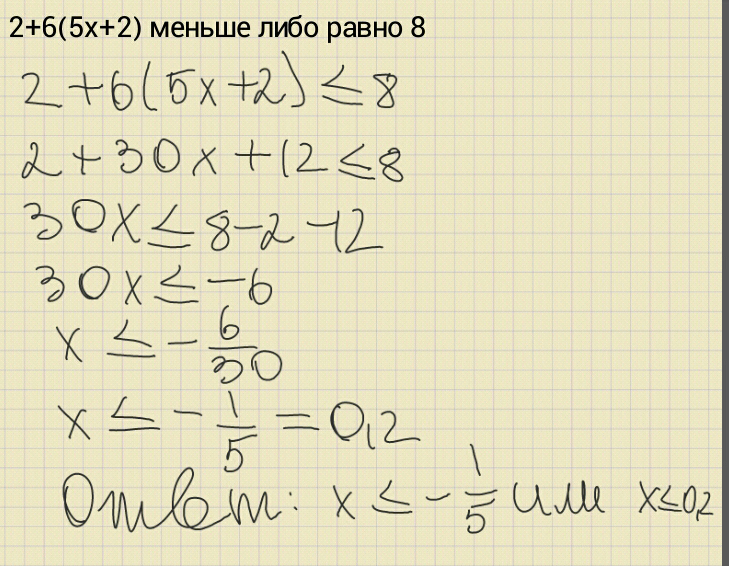 2+6(5x+2) меньше либо равно 8
2+6(5x+2)≤8
2+30x+12≤8
30x≤8-2-12
30x≤-6
x≤-6/30
x≤-1/5=0,2
Ответ: x≤-1/5 или x≤0,2